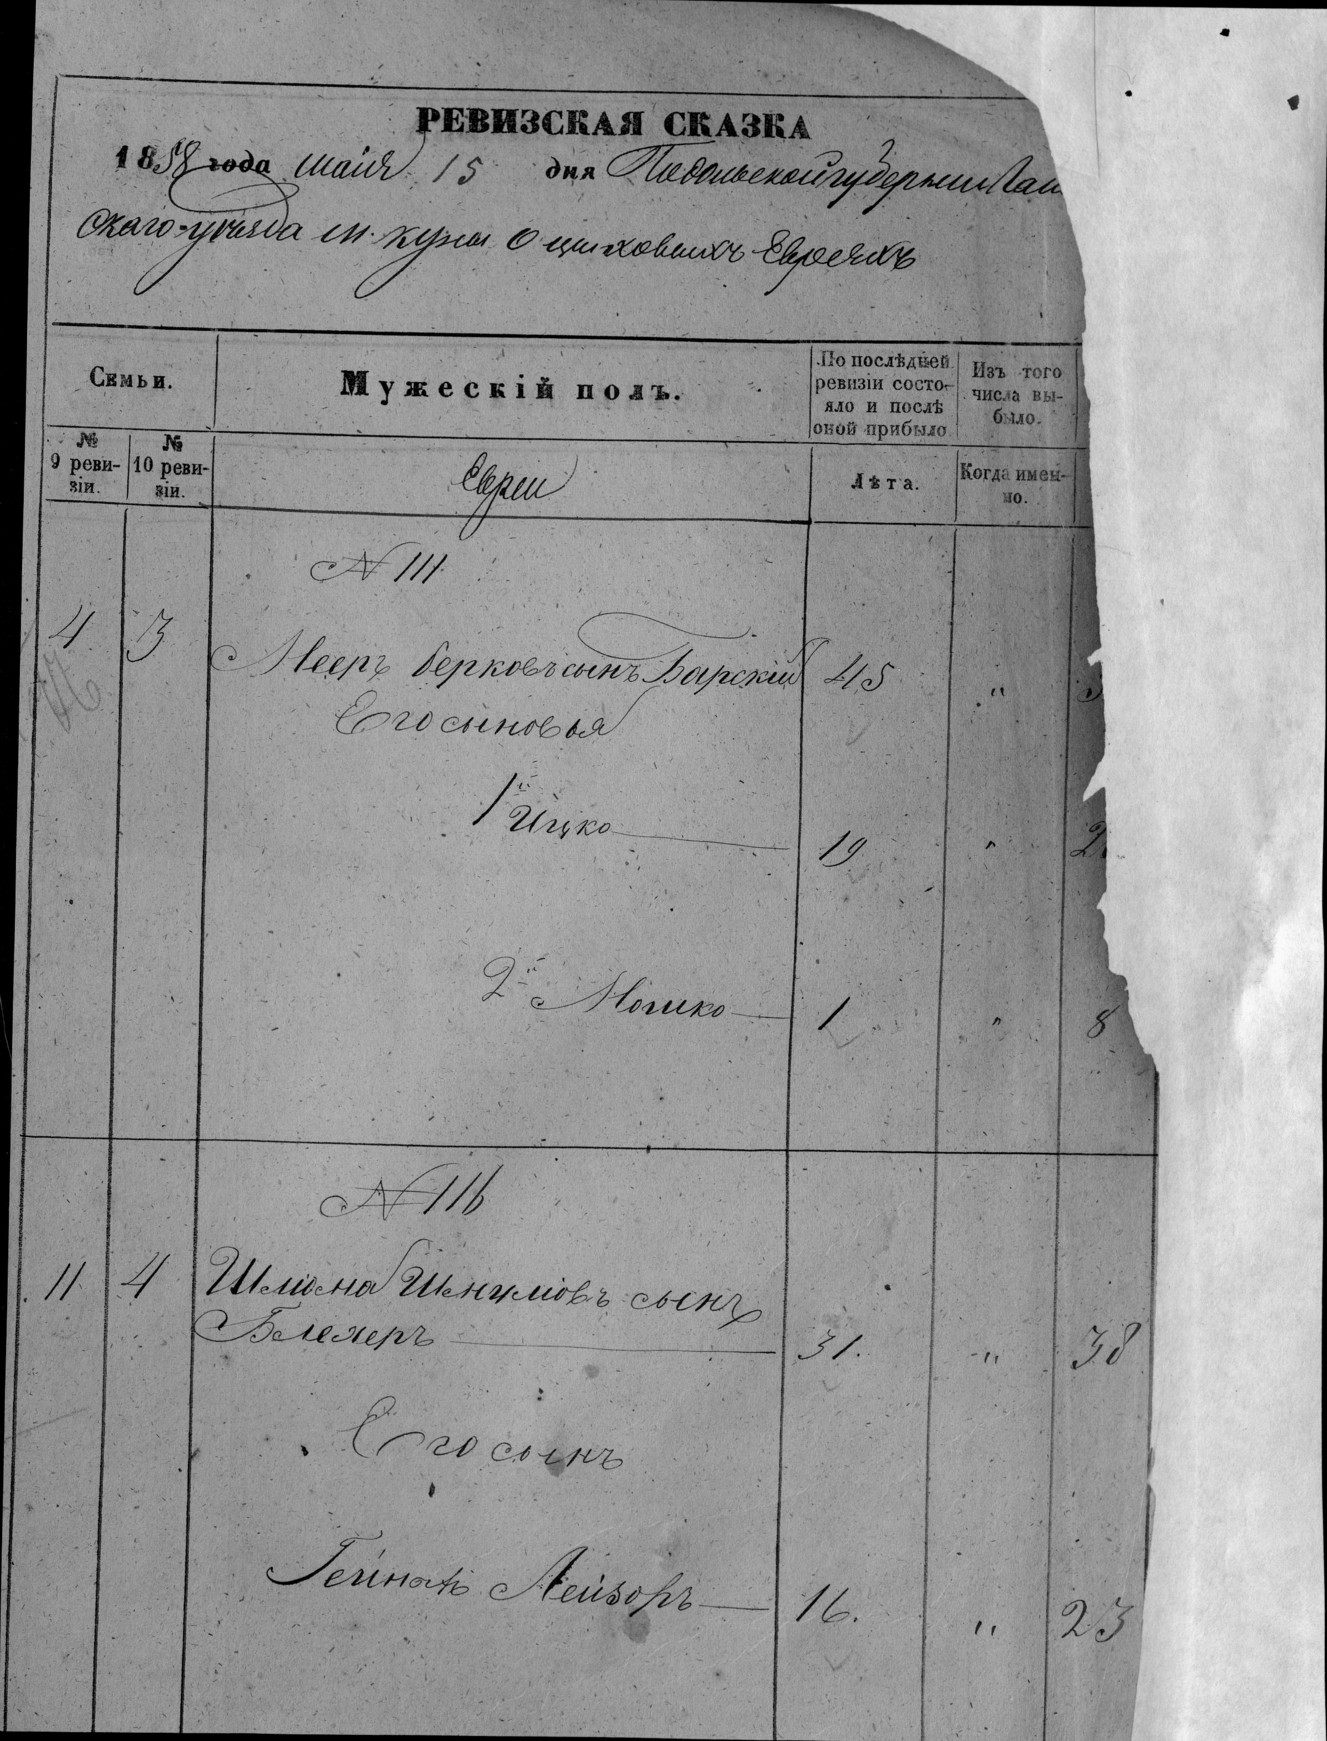 РЕВИЗСКАЯ СКАЗКА
1858 года маія 15 дня Подольской губерніи Гай
скаго уѣзда м. Куны о цеховыхъ Евреяхъ
Семьи.
Мужескій полъ.
По послѣдней ревизіи состо-
яло и послѣ
оной прибыло
Изъ того
числа вы-
было.
№
9 реви-
зіи.
№
10 реви-
зіи.
Евреи
Лѣта.
Когда имен-
но.
N 111
4 3 Мееръ Берковъ сынъ Барскій 45 "
Его сыновья
1й Ицко 19 " 2
2й Мошко 1 " 8
N 116
11 4 Шлiома Шмулiовъ сынъ
Блехеръ 31. " 38
Его сынъ
Лейзоръ 16. " 23